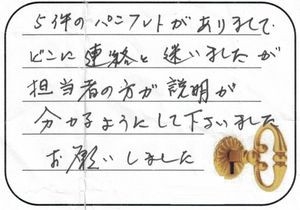 5件のパンフレットがありまして
どこに連絡と迷いましたが
担当者の方が説明が
分かるようにして下さいました
お願いしました